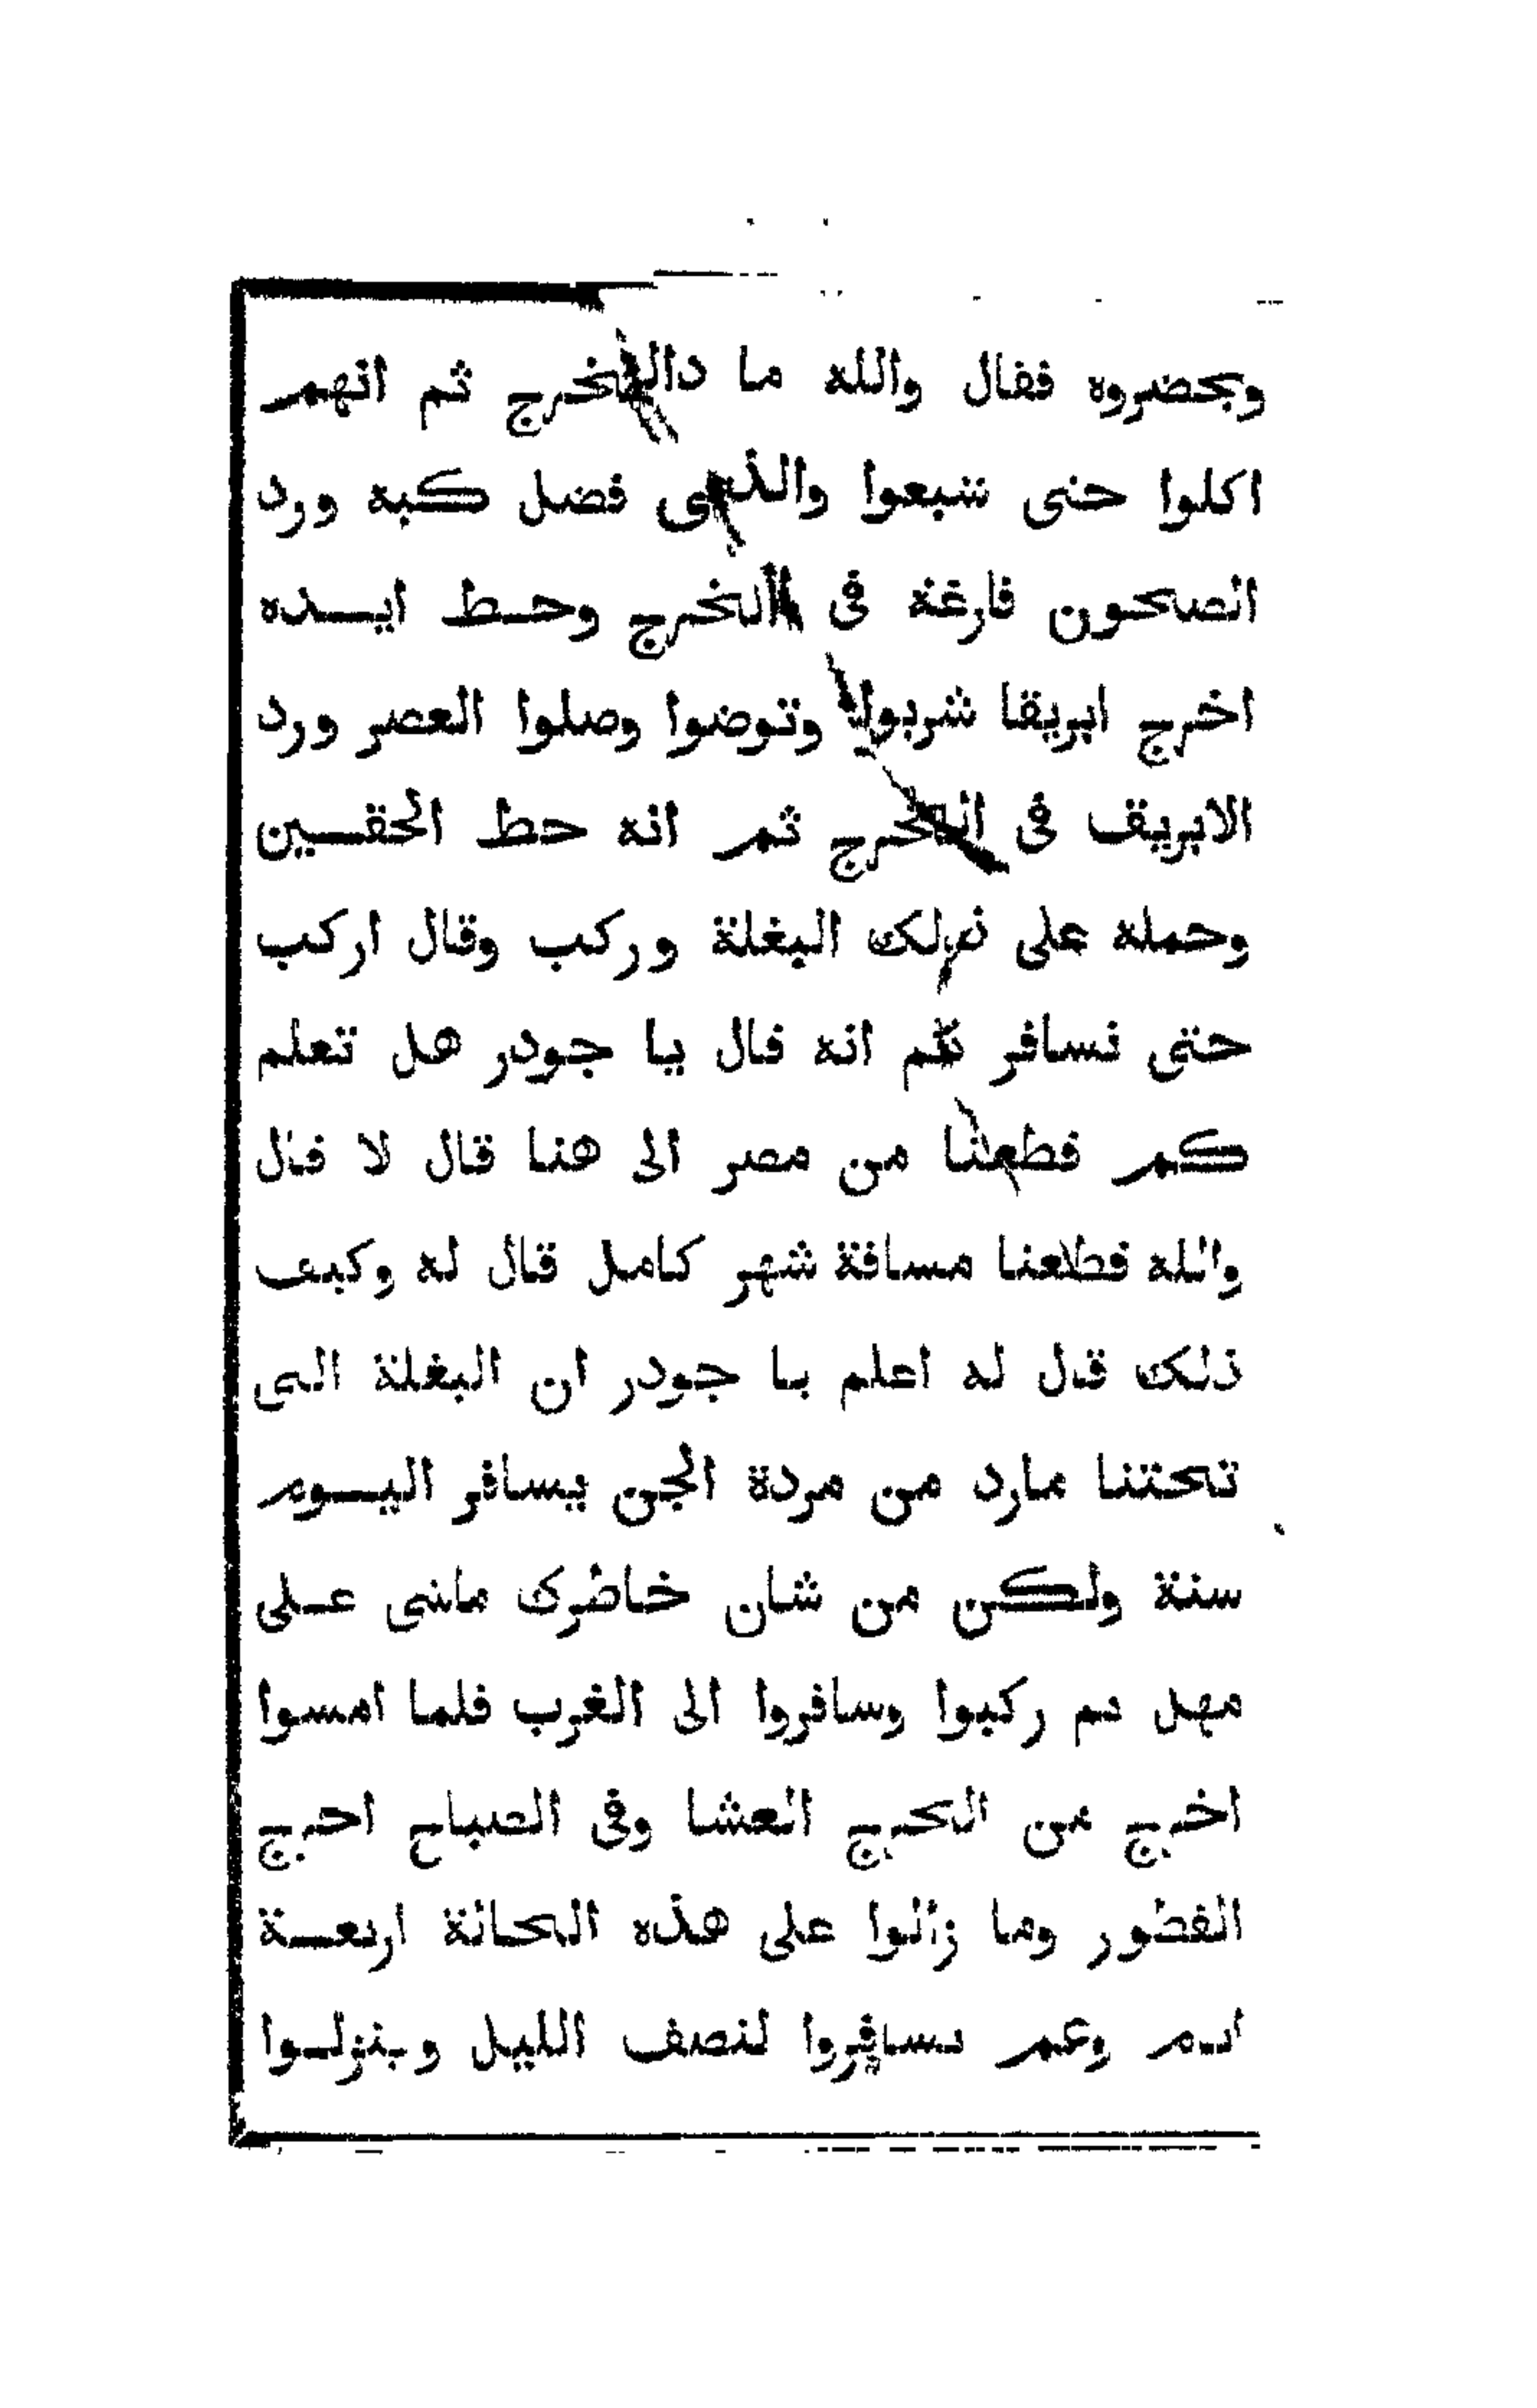 ويحضروه فقال والله ما دالخرج ثم انهم
اكلوا حتى شبعوا والذى فضل كبه ورد
الصحون فارغة فى الخرج وحط ايده
اخرج ابريقا شربوا وتوضوا وصلوا العصر ورد
الابريق فى الخرج ثم انه حط الحقين
وحمله على تلك البغلة وركب وقال اركب
حتى نسافر ثم انه قال يا جودر هل تعلم
كم قطعنا من مصر الى هنا قال لا قال
والله قطعنا مسافة شهر كامل قال له وكيف
ذلك قال له اعلم يا جودر ان البغلة التى
تحتنا مارد من مردة الجن يسافر اليوم
سنة ولكن من شان خاطرك ماشى على
مهل ثم ركبوا وسافروا الى الغرب فلما امسوا
اخرج من الخرج العشا وفى الصباح اخرج
الفطور وما زالوا على هذه الحالة اربعة
ايام وهم يسافروا لنصف الليل وينزلوا